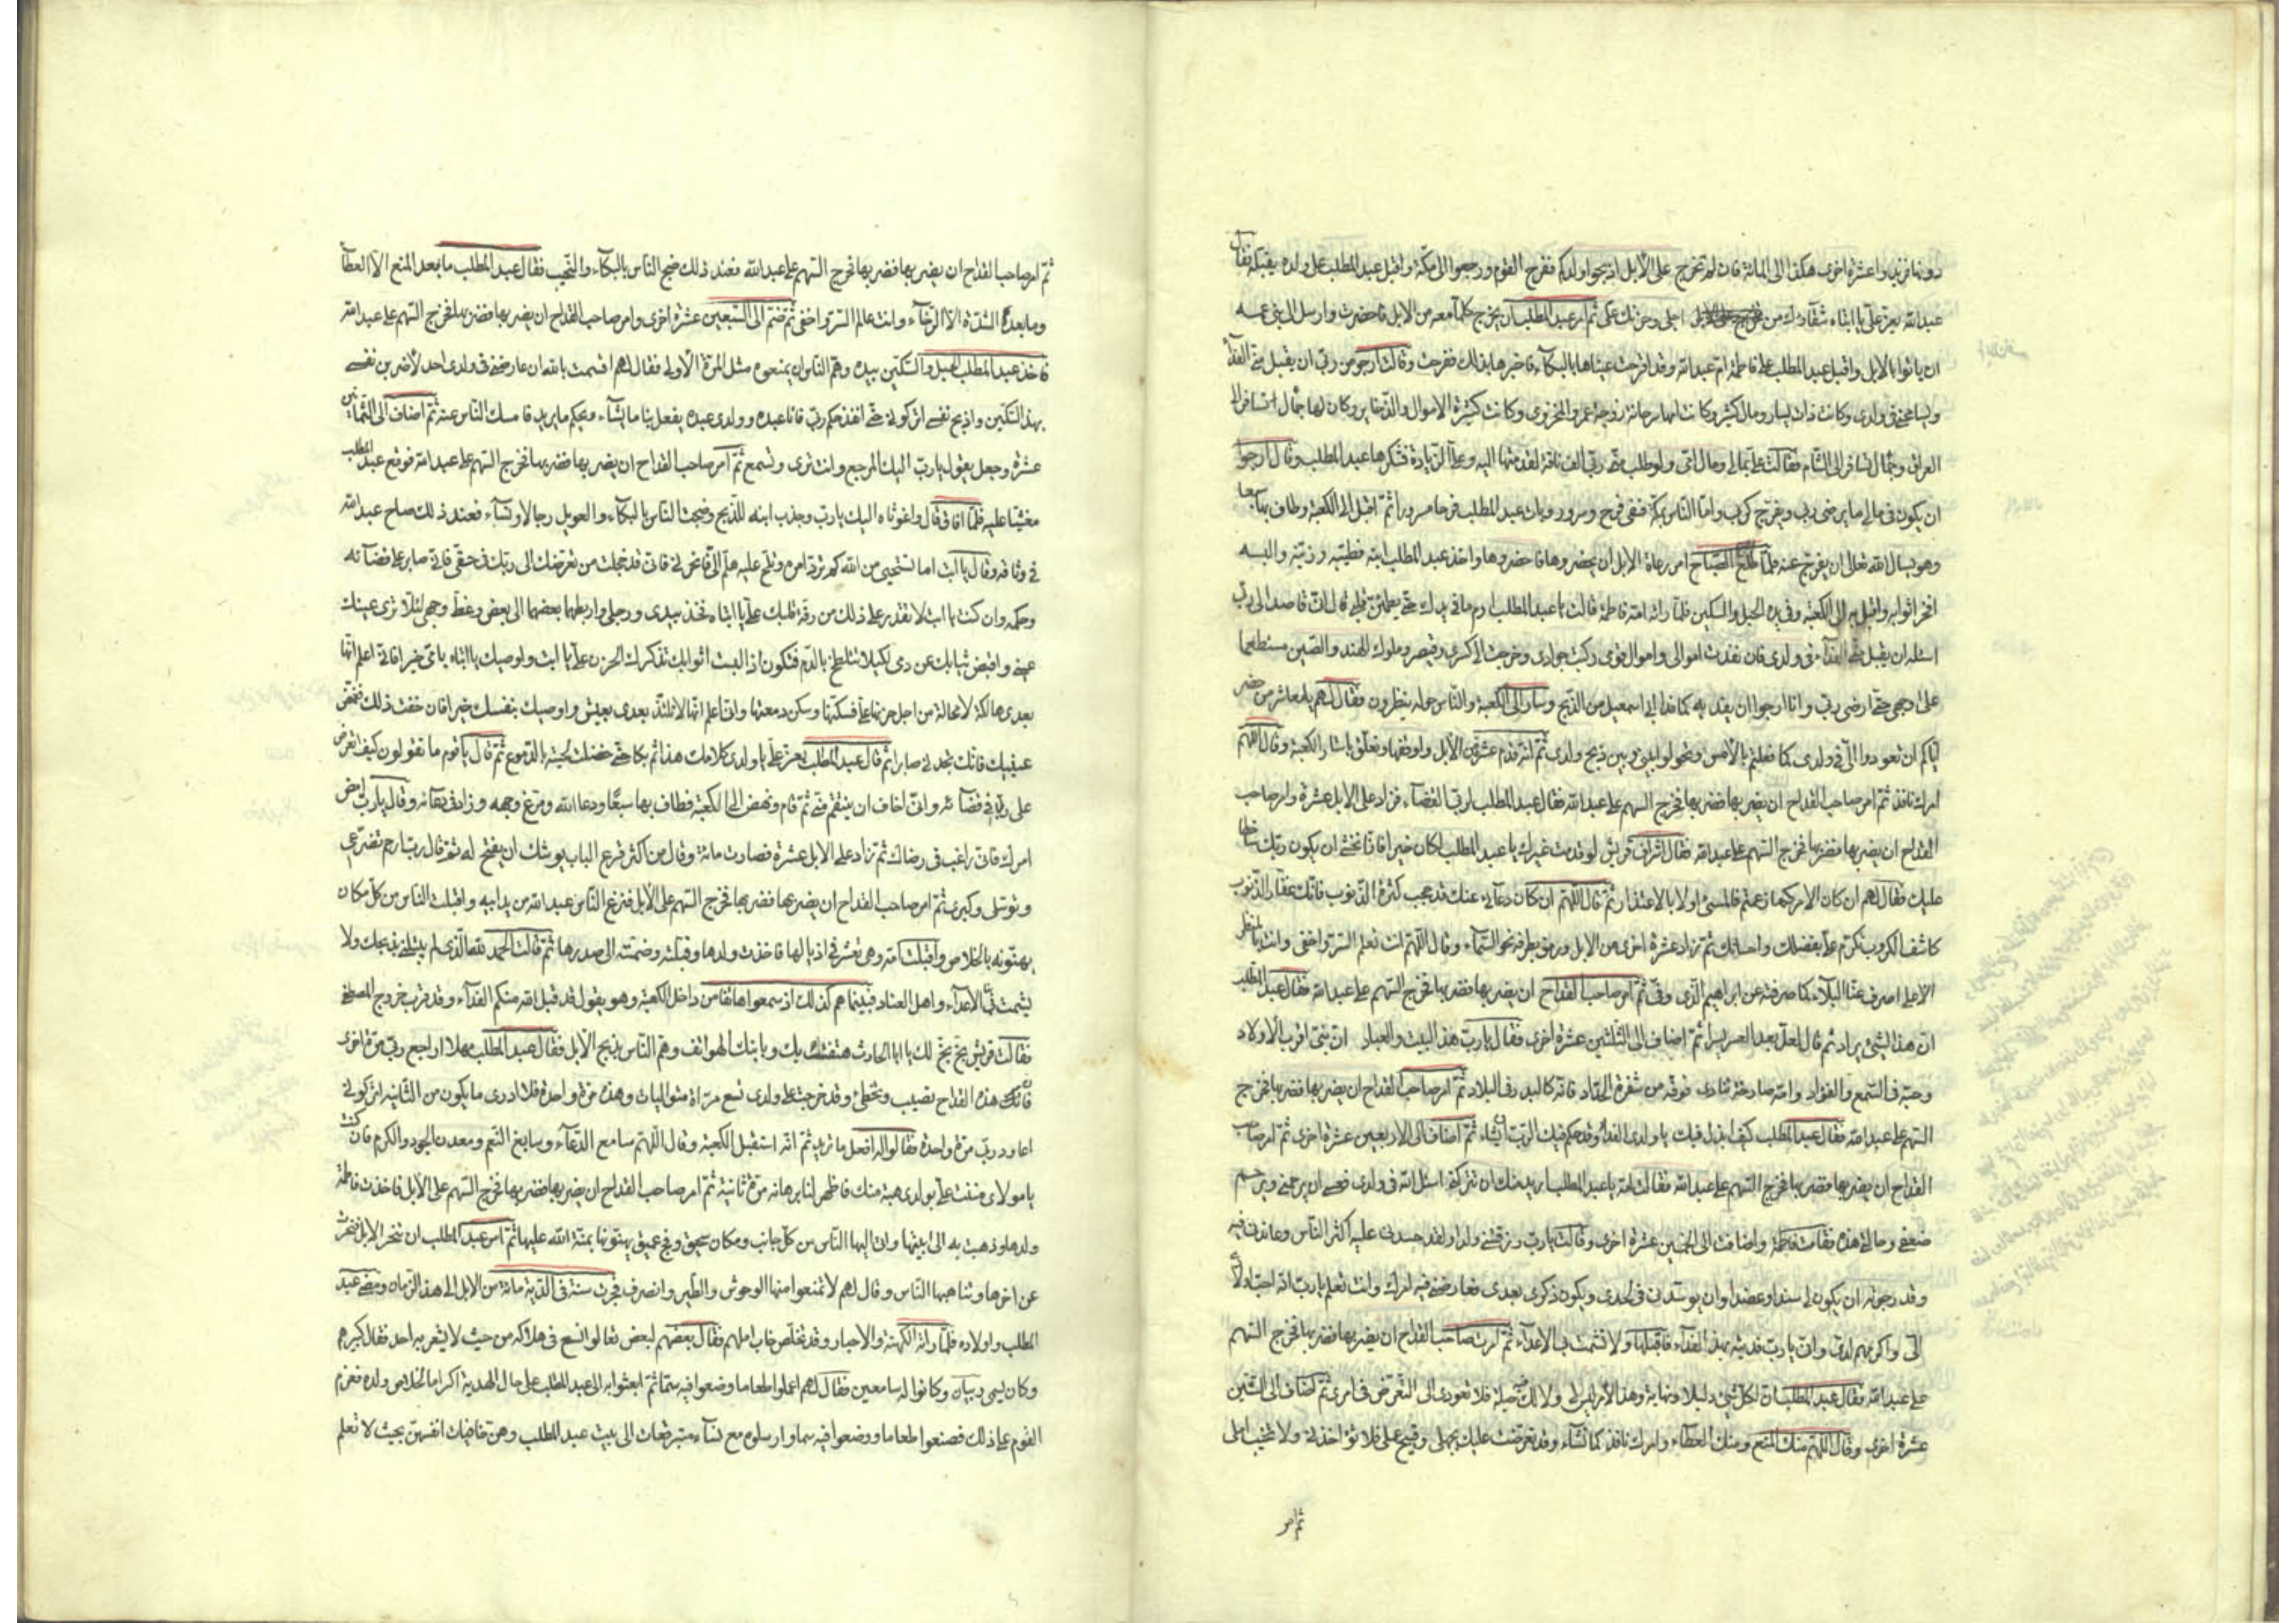 دونها فزيدوا عشرة اخرى هكذا الى المائة فان لم تخرج على الابل اذبحوا ولدكم ففرح القوم ورجعوا الى مكة واقبل عبد المطلب على ولده يقبله فقال
عبد الله يعز على يا ابتاه شقاؤك من اجلى وحزنك على ثم امر عبد المطلب ان يخرج كلما معه من الابل فاحضرت وارسل الى بنى عمه
ان ياتوا بالابل واقبل عبد المطلب على فاطمة ام عبد الله وقد اقرحت عيناها بالبكاء فاخبرها بذلك ففرحت وقالت ارجو من ربى ان يقبل منى الفداء
ويسامحنى فى ولدى وكانت ذات يسار ومال كثير وكانت امها سرحانة زوجة عمرو المخزومى وكانت كثيرة الاموال والذخاير وكان لها جمال تسافر الى
العراق وجمال تسافر الى الشام فقالت على بمالى ومال امى ولو طلب منى ربى الف ناقة لقدمتها اليه وعلى الزيادة فشكرها عبد المطلب وقال ارجو
ان يكون فى مالى ما يرضى ربى ويفرج كربى واما الناس بمكة ففى فرح وسرور وبات عبد المطلب فرحا مسرورا ثم اقبل الى الكعبة وطاف بها سبعا
وهو يسال الله تعالى ان يفرج عنه فلما طلع الصباح امر رعاة الابل ان يحضروها فاحضروها واخذ عبد المطلب ابنه فطيبه وزينه والبسه
افخر اثوابه واقبل به الى الكعبة وفى يده الحبل والسكين فلما راته امه فاطمة قالت يا عبد المطلب ارم ما فى يدك حتى يطمئن قلبى قال انى قاصد الى ربى
اسئله ان يقبل منى الفداء فى ولدى فان نفدت اموالى واموال قومى ركبت جوادى وخرجت الى كسرى وقيصر وملوك الهند والصين مستطعما
على وجهى حتى ارضى ربى وانا ارجو ان يفديه كما فدا ابى اسمعيل من الذبح وسار الى الكعبة والناس حوله ينظرون فقال لهم يا معاشر من حضر
اياكم ان تعودوا الى فى ولدى كما فعلتم بالامس وتحولوا بينى وبين ذبح ولدى ثم انه قدم عشرة من الابل واوقفها وتعلق باستار الكعبة وقال اللهم
امرك نافذ ثم امر صاحب القداح ان يضربها فضربها فخرج السهم على عبد الله فقال عبد المطلب لربى القضاء فزاد على الابل عشرة وامر صاحب
القداح ان يضربها فضربها فخرج السهم على عبد الله فقال اشراف قريش لو قدمت غيرك يا عبد المطلب لكان خيرا فانا نخشى ان يكون ربك ساخطا
عليك فقال لهم ان كان الامر كما زعمتم فالمسىء اولى بالاعتذار ثم قال اللهم ان كان دعائى عنك قد حجب كثرة الذنوب فانك غفار الذنوب
كاشف الكروب تكرم على بفضلك واحسانك ثم زاد عشرة اخرى من الابل ورمق بطرفه نحو السماء وقال اللهم انت تعلم السر واخفى وانت بالمنظر
الاعلى اصرف عنا البلاء كما صرفته عن ابراهيم الذى وفى ثم امر صاحب القداح ان يضربها فضربها فخرج السهم على عبد الله فقال عبد المطلب
ان هذا لشئ يراد ثم قال لعل بعد العسر يسرا ثم اضاف الى الثلثين عشرة اخرى فقال يا رب هذا البيت والعباد ان بنى اقرب الاولاد
وحبه فى السمع والفؤاد وامه صارخة تنادى فوقه من شفرة الحداد فانه كالبدر فى البلاد ثم امر صاحب القداح ان يضربها فضربها فخرج
السهم على عبد الله فقال عبد المطلب كيف ابذل فيك يا ولدى الفداء وقد حكم فيك الرب بما يشاء ثم اضاف الى الاربعين عشرة اخرى ثم امر صاحب
القداح ان يضربها فضربها فخرج السهم على عبد الله فقالت امه يا عبد المطلب اريد منك ان تتركنى اسئل الله فى ولدى فعسى ان يرحمنى ويرحم
ضعفى وحالى هذه فقامت فاطمة واضافت الى الخمسين عشرة اخرى وقالت يا رب رزقتنى ولدا ولقد حسدنى عليه اكثر الناس وعاندنى فيه
وقد رجوته ان يكون لى سندا وعضدا وان يوسدنى فى لحدى ويكون ذكرى بعدى فعارضنى فيه امرك وانت تعلم يا رب انه احب اولادى
الى واكرمهم لدى وانى يا رب فديته بهذا الفداء فاقبلها ولا تشمت بى الاعداء ثم امرت صاحب القداح ان يضربها فضربها فخرج السهم
على عبد الله فقال عبد المطلب ان لكل شئ دليلا ونهاية وهذا الامر ليس لى ولا لك فيه حيلة فلا تعودى الى التعرض فى امرى ثم اضاف الى الستين
عشرة اخرى وقال اللهم منك المنع ومنك العطاء وامرك نافذ كما تشاء وقد تعرضت عليك بجهلى وقبيح عملى فلا تؤاخذنى ولا تخيب املى
ثم امر
ثم امر صاحب القداح ان يضربها فضربها فخرج السهم على عبد الله فعند ذلك ضج الناس بالبكاء والنحيب فقال عبد المطلب ما بعد المنع الا العطاء
وما بعد الشدة الا الرخاء وانت عالم السر واخفى ثم ضم الى السبعين عشرة اخرى وامر صاحب القداح ان يضربها فضربها فخرج السهم على عبد الله
فاخذ عبد المطلب الحبل والسكين بيده وهم الناس ان يمنعوه مثل المرة الاولى فقال لهم اقسمت بالله ان عارضنى فى ولدى احد لاضربن نفسى
بهذا السكين واذبح نفسى اتركونى حتى انفذ حكم ربى فانا عبده وولدى عبده يفعل بنا ما يشاء ويحكم ما يريد فامسك الناس عنه ثم اضاف الى الثمانين
عشرة وجعل يقول يا رب اليك المرجع وانت ترى وتسمع ثم امر صاحب القداح ان يضربها فضربها فخرج السهم على عبد الله فوقع عبد المطلب
مغشيا عليه فلما افاق قال واغوثاه اليك يا رب وجذب ابنه للذبح وضجت الناس بالبكاء والعويل رجالا ونساء فعند ذلك صاح عبد الله
فى وثاقه وقال يا ابت اما تستحيى من الله كم ترد امره وتلح عليه هلم الى فانحرنى فانى قد خجلت من تعرضك الى ربك فى حقى فانى صابر على قضائه
وحكمه وان كنت يا ابت لا تقدر على ذلك من رقة قلبك على يا ابتاه فخذ بيدى ورجلى واربطهما بعضهما الى بعض وغط وجهى لئلا ترى عينك
عينى واقبض ثيابك عن دمى لكيلا تتلطخ بالدم فتكون اذا لبست اثوابك تذكرك الحزن على يا ابت واوصيك يا ابتاه بامى خيرا فانى اعلم انها
بعدى هالكة لا محالة من اجل حزنها على فسكنها وسكن دمعتها وانى اعلم انها لا تلتذ بعدى بعيش واوصيك بنفسك خيرا فان خفت ذلك فغمض
عينيك فانك تجدنى صابرا ثم قال عبد المطلب يعز على يا ولدى كلامك هذا ثم بكا حتى خضلت لحيته بالدموع ثم قال يا قوم ما تقولون كيف اتعرض
على ربى فى قضائه وانى اخاف ان ينتقم منى ثم قام ونهض الى الكعبة فطاف بها سبعا ودعا الله ومرغ وجهه وزاد فى دعائه وقال يا رب امض
امرك فانى راغب فى رضاك ثم زاد على الابل عشرة فصارت مائة وقال من اكثر قرع الباب يوشك ان يفتح له ثم قال رب ارحم تضرعى
وتوسلى وكبرى ثم امر صاحب القداح ان يضربها فضربها فخرج السهم على الابل فنزع الناس عبد الله من يد ابيه واقبلت الناس من كل مكان
يهنونه بالخلاص واقبلت امه وهى تعثر فى اذيالها فاخذت ولدها وقبلته وضمته الى صدرها ثم قالت الحمد لله الذى لم يبتلنى بذبحك ولا
يشمت بى الاعداء واهل العناد فبينما هم كذلك اذ سمعوا هاتفا من داخل الكعبة وهو يقول قد قبل الله منكم الفداء وقد قرب خروج المصطفى
فقالت قريش بخ بخ لك يا ابا الحارث هتفت بك وبابنك الهواتف وهم الناس بذبح الابل فقال عبد المطلب مهلا اراجع ربى مرة اخرى
فان هذه القداح تصيب وتخطئ وقد خرجت على ولدى تسع مرات متواليات وهذه مرة واحدة فلا ادرى ما يكون من الثانية اتركونى
اعاود ربى مرة واحدة فقالوا له افعل ما تريد ثم انه استقبل الكعبة وقال اللهم سامع الدعاء وسابغ النعم ومعدن الجود والكرم فان كنت
يا مولاى مننت على بولدى هبة منك فاظهر لنا برهانه مرة ثانية ثم امر صاحب القداح ان يضربها فضربها فخرج السهم على الابل فاخذت فاطمة
ولدها وذهبت به الى بيتها واتى اليها الناس من كل جانب ومكان سحيق وفج عميق يهنونها بمنة الله عليها ثم امر عبد المطلب ان تنحر الابل فنحرت
عن اخرها وتناهبها الناس وقال لهم لا تمنعوا منها الوحوش والطير وانصرف فجرت سنة فى الدية مائة من الابل الى هذا الزمان ومضى عبد
المطلب واولاده فلما راته الكهنة والاحبار وقد تخلص خاب املهم فقال بعضهم لبعض تعالوا نسع فى هلاكه من حيث لا يشعر به احد فقال كبيرهم
وكان يسمى ربيان وكانوا له سامعين فقال لهم اعملوا طعاما وضعوا فيه سما ثم ابعثوا به الى عبد المطلب على حال الهدية اكراما لخلاص ولده فعزم
القوم على ذلك فصنعوا طعاما ووضعوا فيه سما وارسلوه مع نساء متبرقعات الى بيت عبد المطلب وهن خافيات انفسهن بحيث لا تعلم